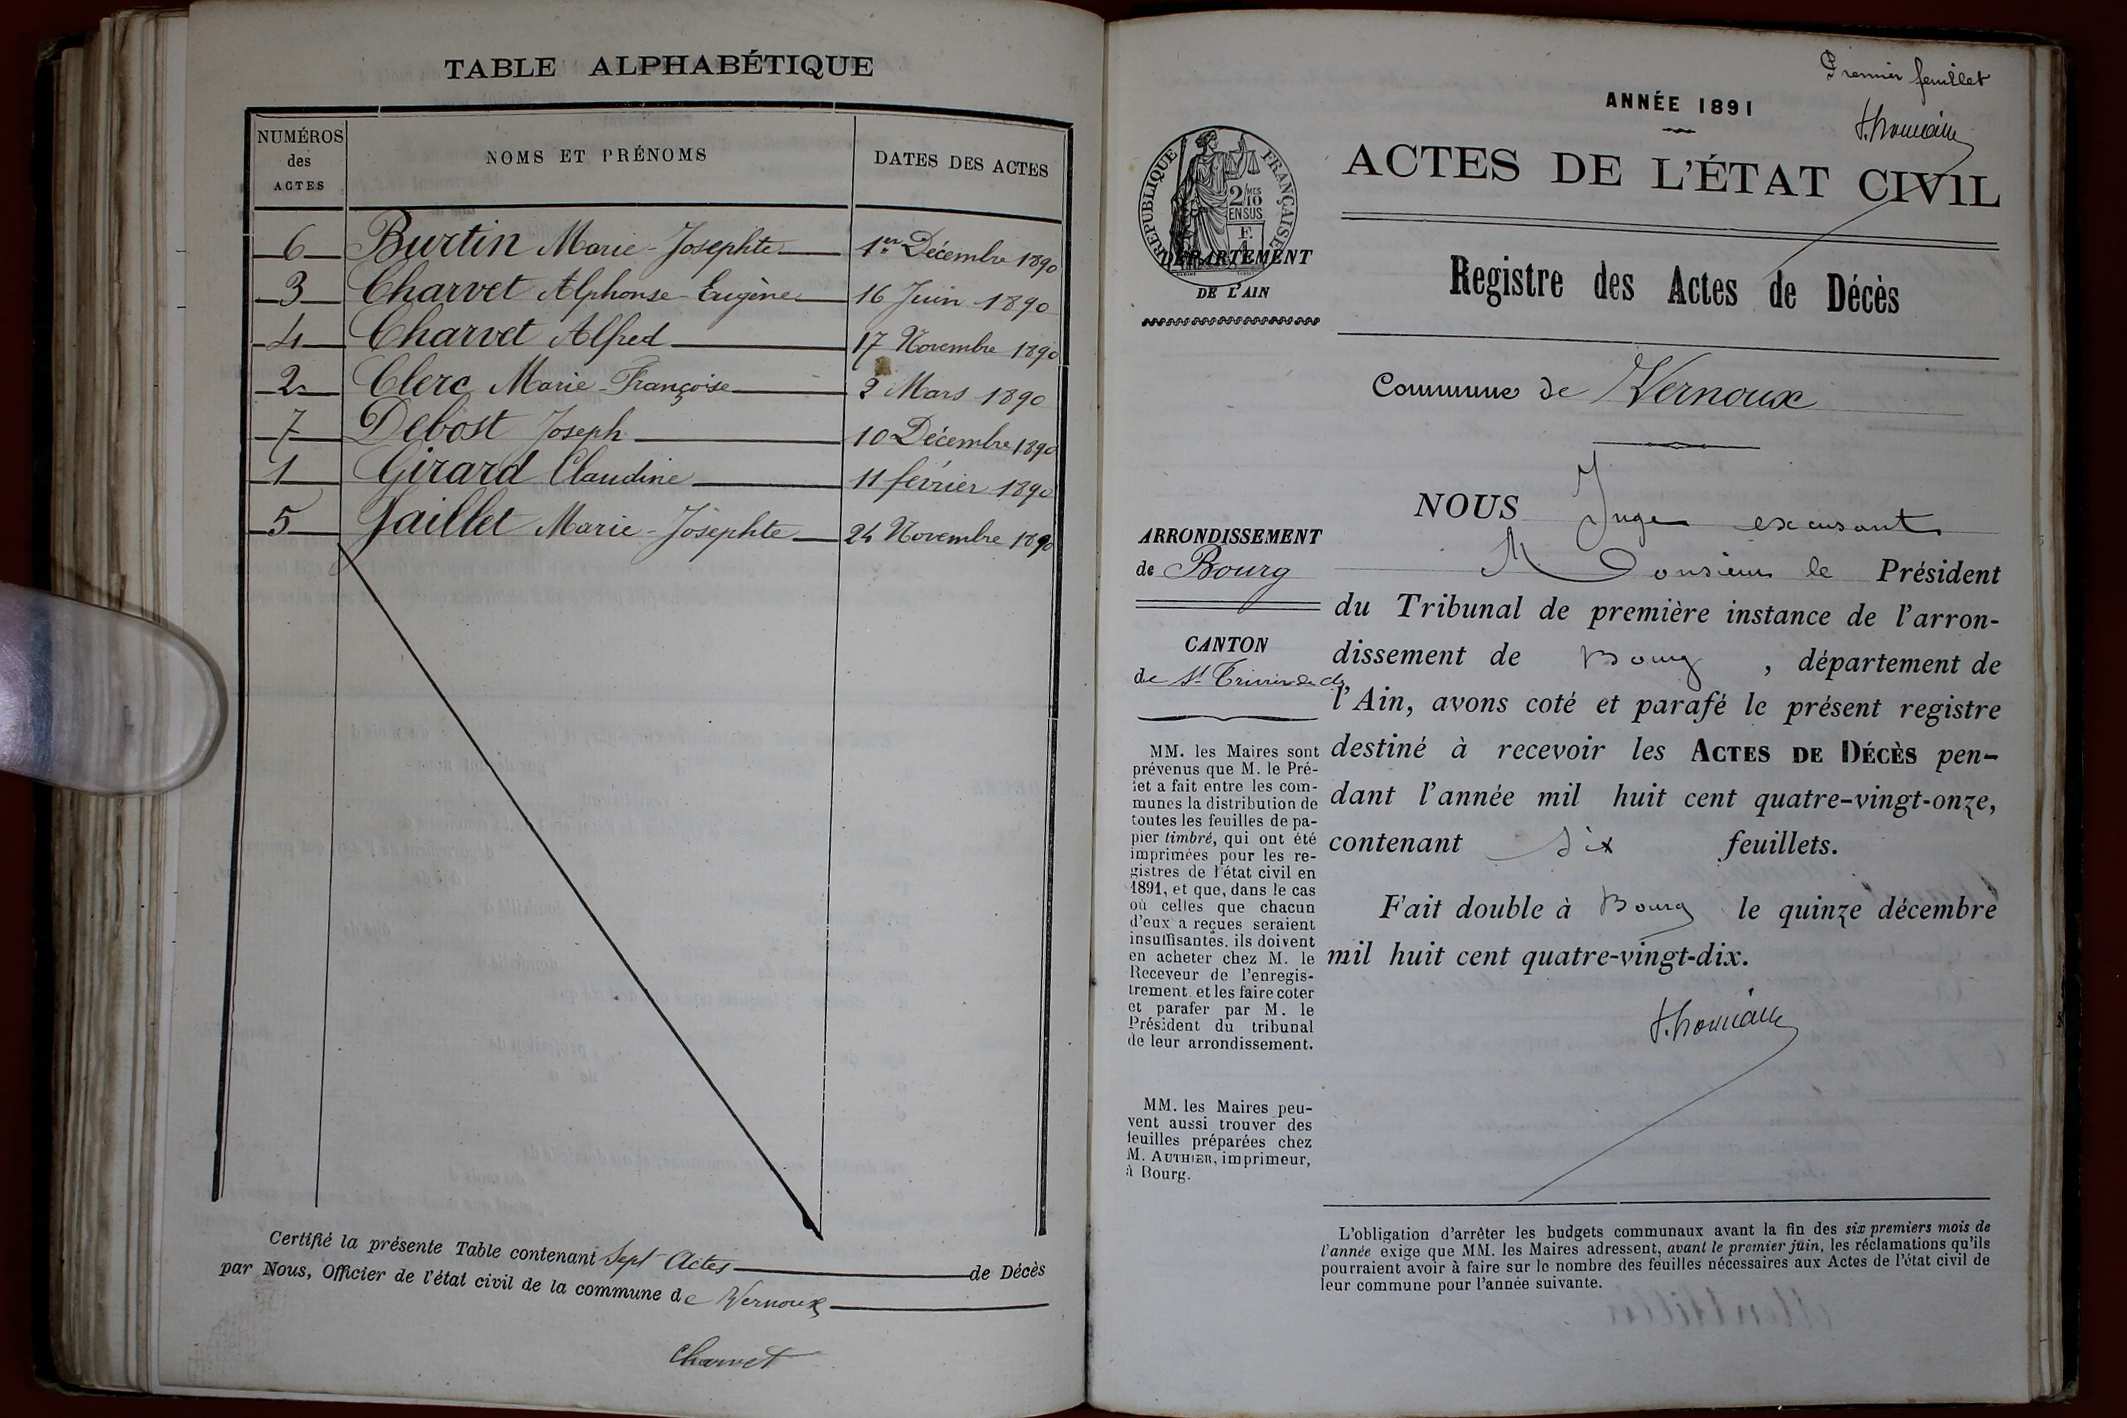 TABLE ALPHABÉTIQUE
NUMÉROS
des
ACTES
NOMS ET PRÉNOMS
DATES DES ACTES
6 Burtin Marie-Josephte 1er Décembre 1890
3 Charvet Alphonse-Eugène 16 Juin 1890
4 Charvet Alfred 17 Novembre 1890
2 Clerc Marie-Françoise 2 Mars 1890
7 Debost Joseph 10 Décembre 1890
1 Girard Claudine 11 février 1890
5 Jaillet Marie-Josephte 24 Novembre 1890
Certifié la présente Table contenant Sept Actes de Décès
par Nous, Officier de l'état civil de la commune de Vernoux
Charvet
Premier feuillet
ANNÉE 1891
ACTES DE L'ÉTAT CIVIL
RÉPUBLIQUE FRANÇAISE
2/10 MES
EN SUS
F.
1
DÉPARTEMENT
DE L'AIN
Registre des Actes de Décès
Commune de Vernoux
ARRONDISSEMENT
de Bourg
CANTON
de St Trivier de
MM. les Maires sont
prévenus que M. le Pré-
fet a fait entre les com-
munes la distribution de
toutes les feuilles de pa-
pier timbré, qui ont été
imprimées pour les re-
gistres de l'état civil en
1891, et que, dans le cas
où celles que chacun
d'eux a reçues seraient
insuffisantes, ils doivent
en acheter chez M. le
Receveur de l'enregis-
trement et les faire coter
et parafer par M. le
Président du tribunal
de leur arrondissement.
MM. les Maires peu-
vent aussi trouver des
feuilles préparées chez
M. AUTHIER, imprimeur,
à Bourg.
NOUS Juge excusant
Monsieur le Président
du Tribunal de première instance de l'arron-
dissement de Bourg, département de
l'Ain, avons coté et parafé le présent registre
destiné à recevoir les ACTES DE DÉCÈS pen-
dant l'année mil huit cent quatre-vingt-onze,
contenant Six feuillets.
Fait double à Bourg le quinze décembre
mil huit cent quatre-vingt-dix.
L'obligation d'arrêter les budgets communaux avant la fin des six premiers mois de
l'année exige que MM. les Maires adressent, avant le premier juin, les réclamations qu'ils
pourraient avoir à faire sur le nombre des feuilles nécessaires aux Actes de l'état civil de
leur commune pour l'année suivante.